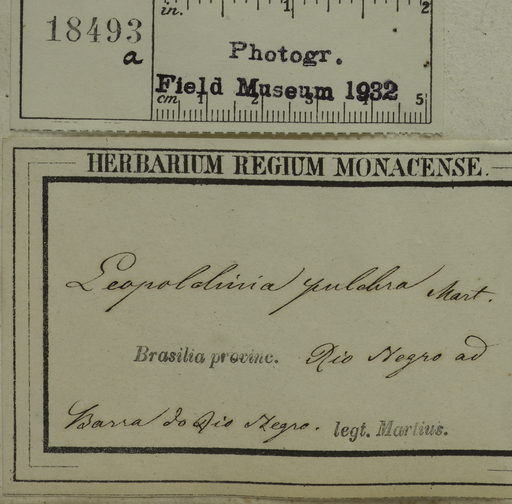 18493
a
in. 1 2
Photogr.
Field Museum 1932
cm 1 2 3 4 5
HERBARIUM REGIUM MONACENSE.
Leopoldinia pulchra Mart.
Brasilia provinc. Rio Negro ad
Barra do Rio Negro. legt. Martius.